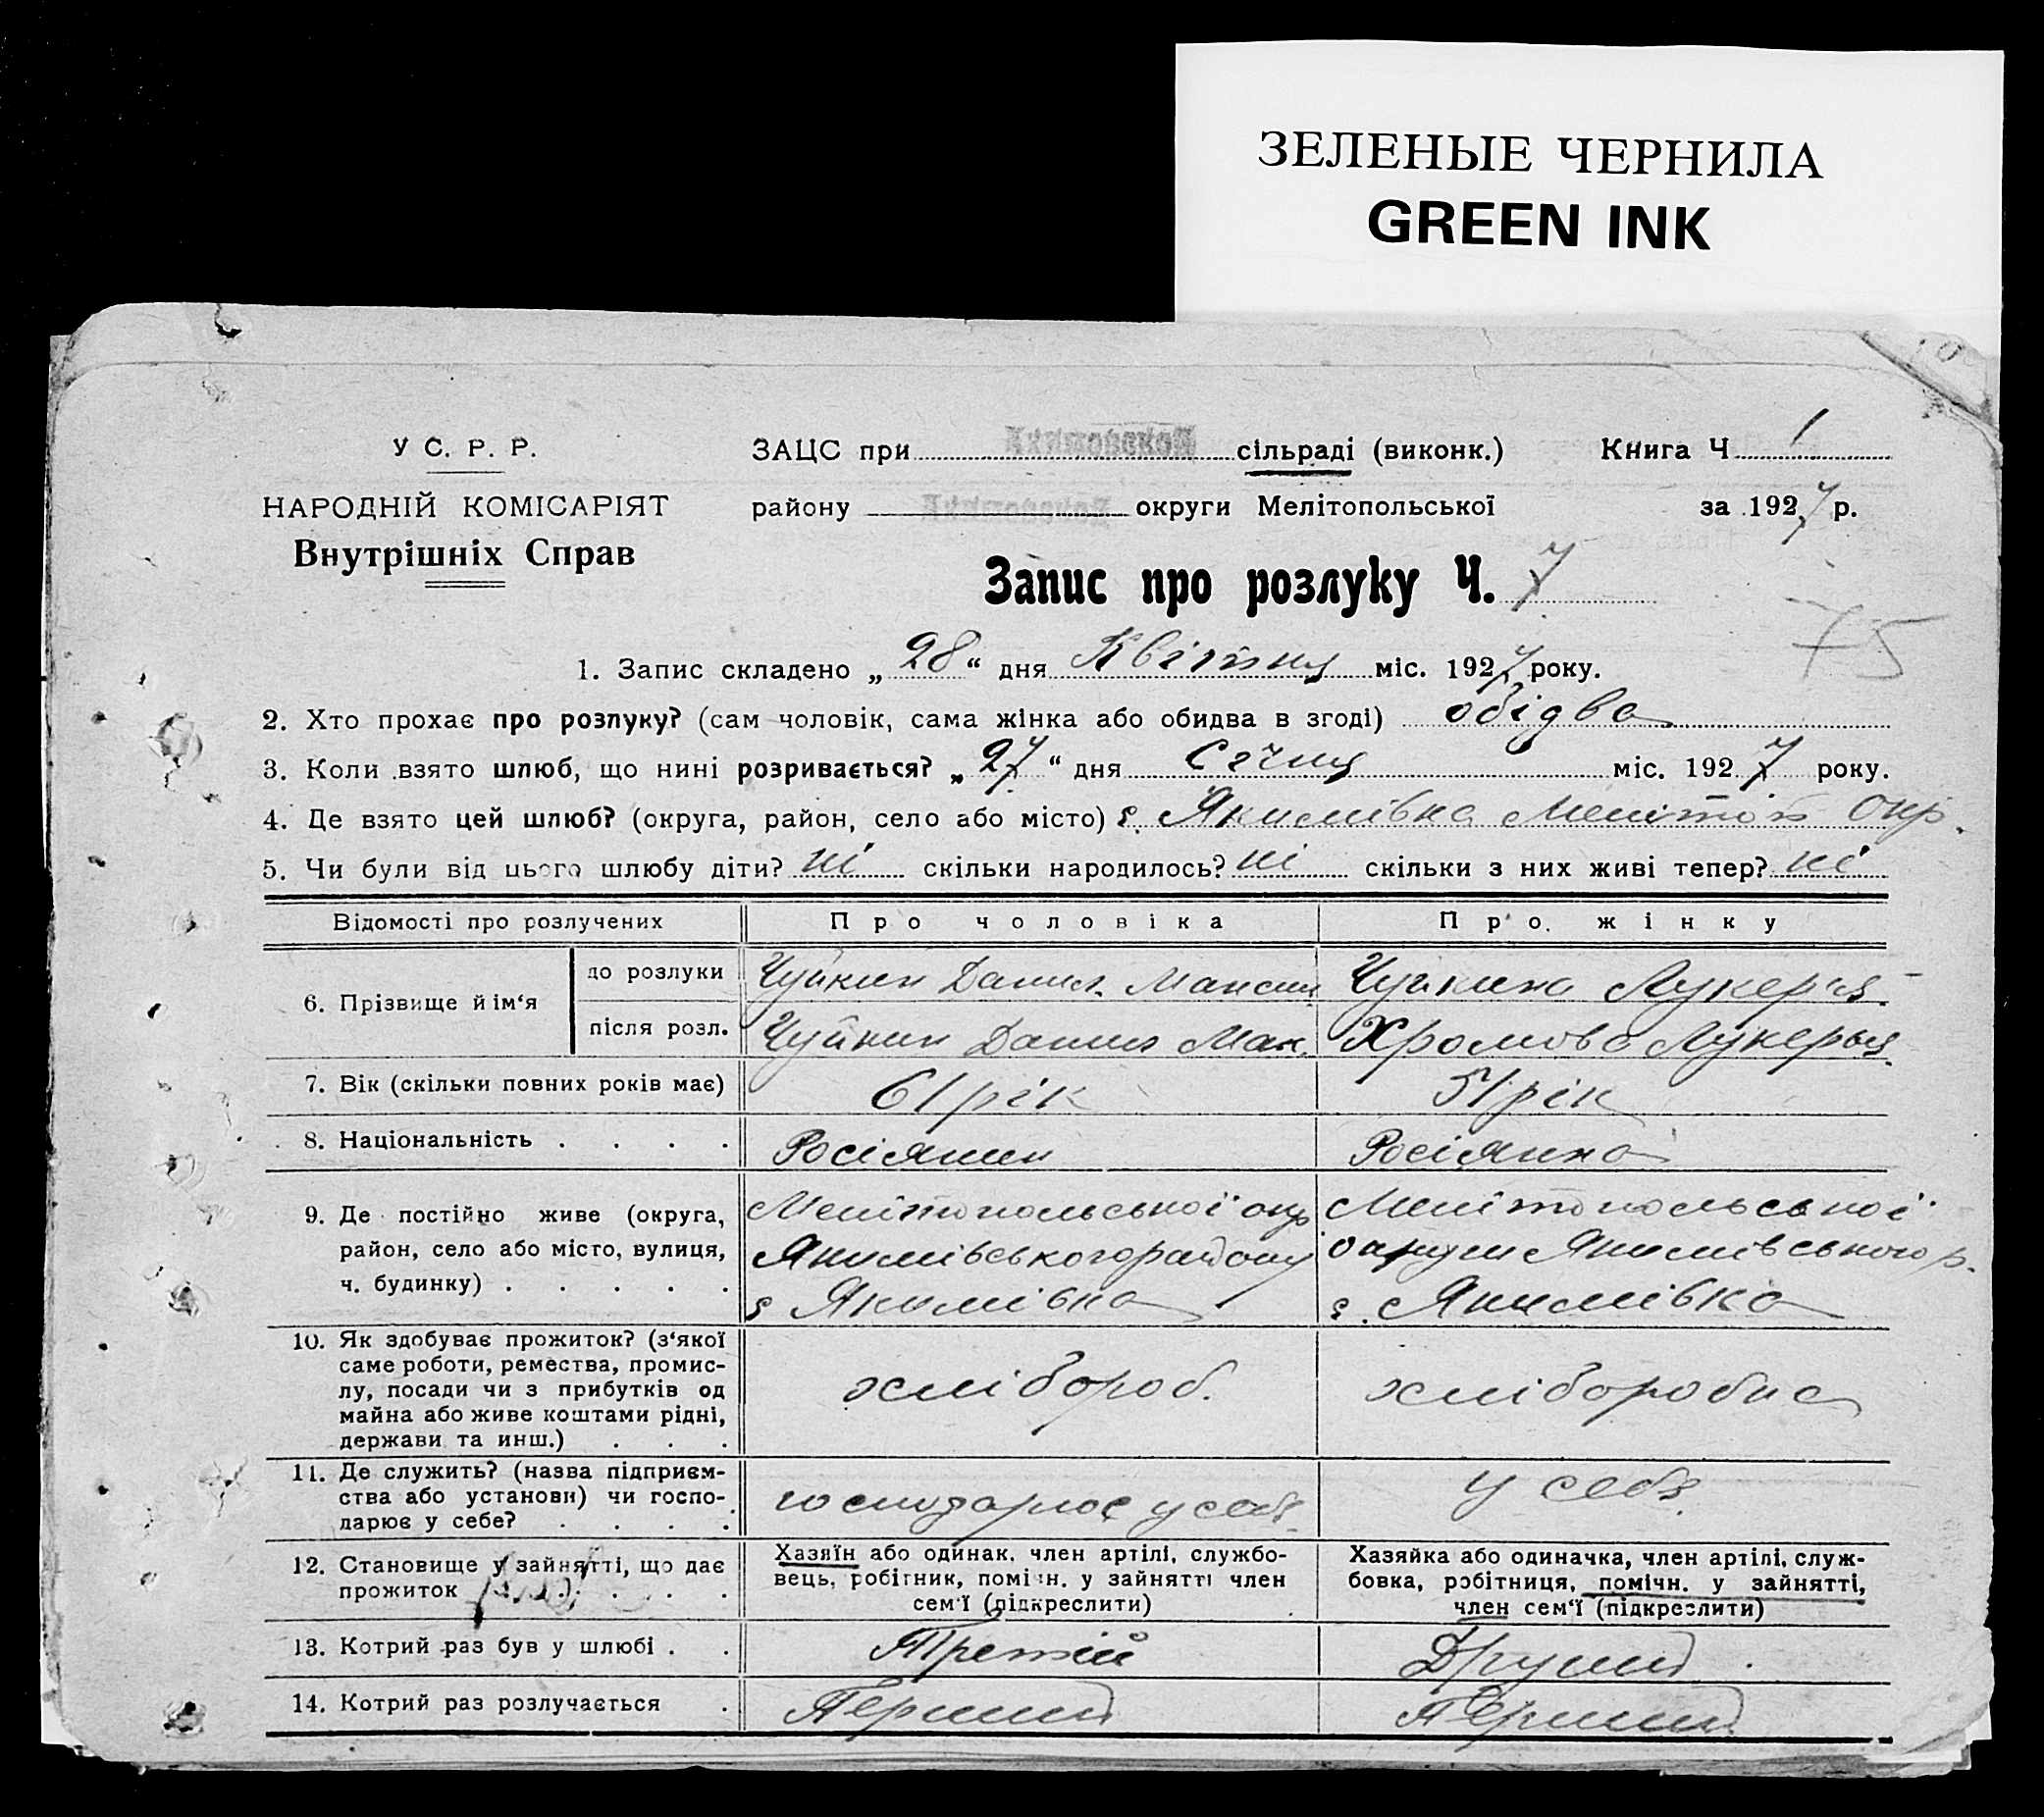 ЗЕЛЕНЫЕ ЧЕРНИЛА
GREEN INK
У С. Р. Р.
НАРОДНІЙ КОМІСАРІЯТ
Внутрішніх Справ
ЗАЦС при сільраді (виконк.) Книга Ч 1
району округи Мелітопольської за 1927 р.
Запис про розлуку Ч. 7
75
1. Запис складено „28“ дня Квітня міс. 1927 року.
2. Хто прохає про розлуку? (сам чоловік, сама жінка або обидва в згоді) обідва
3. Коли взято шлюб, що нині розривається? „27“ дня Січня міс. 1927 року.
4. Де взято цей шлюб? (округа, район, село або місто) с. Якимівка Меліто́п окр.
5. Чи були від цього шлюбу діти? ні скільки народилось? ні скільки з них живі тепер? ні
Відомості про розлучених Про чоловіка Про жінку
6. Прізвище й ім‘я
до розлуки Чуйкин Данил Максим Чуйкина Лукер'я
після розл. Чуйкин Данил Мак. Хромова Лукерья
7. Вік (скільки повних років має) 61 рік 51 рік
8. Національність . . . . Росіянин Росіянка
9. Де постійно живе (округа, район, село або місто, вулиця, ч. будинку) . . . . .
Мелітопольської окр
Якимівського району
с Якимівка
Мелітопольської
округи Якимівського р.
с. Якимівка
10. Як здобуває прожиток? (з‘якої
саме роботи, ремества, промис-
лу, посади чи з прибутків од
майна або живе коштами рідні,
держави та инш.) . . .
хлібороб. хліборобка
11. Де служить? (назва підприєм-
ства або установи) чи госпо-
дарює у себе? . . . .
господарює у себе. у себе.
12. Становище у зайнятті, що дає
прожиток . . . . .
Хазяїн або одинак, член артілі, службо-
вець, робітник, помічн. у зайнятті член
сем‘ї (підкреслити)
Хазяйка або одиначка, член артілі, служ-
бовка, робітниця, помічн. у зайнятті,
член сем‘ї (підкреслити)
13. Котрий раз був у шлюбі . . Третій Другий
14. Котрий раз розлучається . Перший Перший